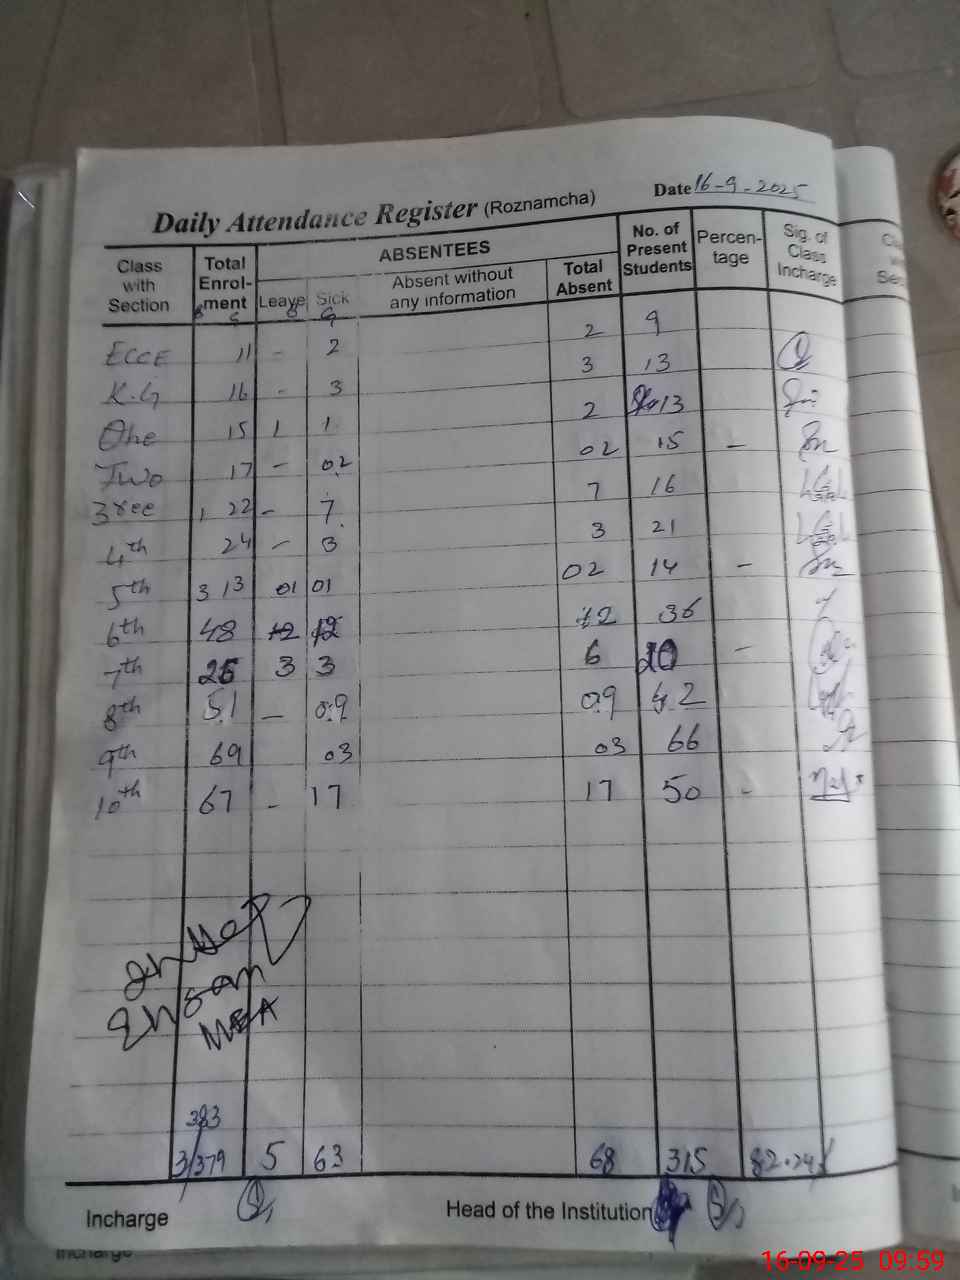 Date 16-9-2025
Daily Attendance Register (Roznamcha)
Class with Section
Total Enrol-ment
ABSENTEES
Leave
Sick
Absent without any information
Total Absent
No. of Present Students
Percen-tage
Sig. of Class Incharge
ECCE 11 - 2 2 9
K.G 16 - 3 3 13
One 15 1 1 2 13
Two 17 - 02 02 15 -
3ree 1, 22 - 7 7 16
4th 24 - 3 3 21
5th 3 13 01 01 02 14 -
6th 48 12 12 12 36
7th 26 3 3 6 20 -
8th 51 - 09 09 42
9th 69 03 03 66
10th 67 - 17 17 50 -
MEA
383
3/379 5 63 68 315 82.24
Incharge
Head of the Institution
Incharge
16-09-25 09:59